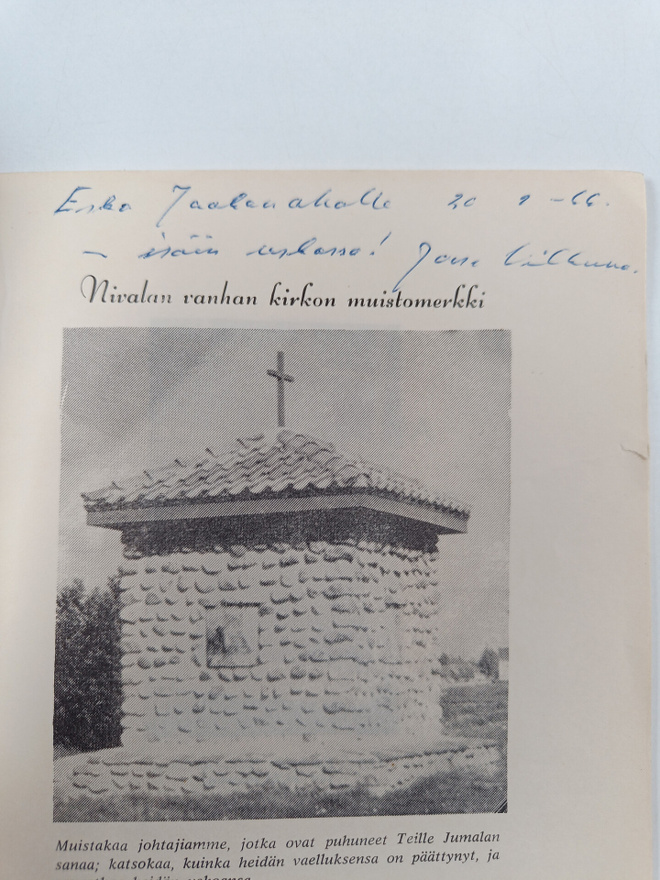 Esko Jaakonaholle 20 9 -66.
– isäin uskossa! Jouse Vilkuna.
Nivalan vanhan kirkon muistomerkki
Muistakaa johtajiamme, jotka ovat puhuneet Teille Jumalan
sanaa; katsokaa, kuinka heidän vaelluksensa on päättynyt, ja